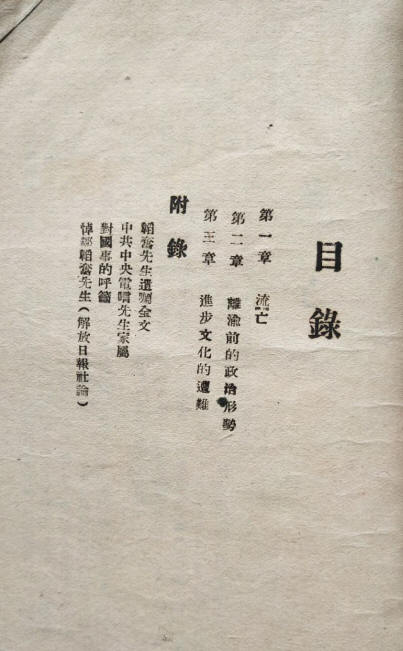 目錄
第一章 流亡
第二章 離渝前的政治形勢
第三章 進步文化的遭難
附錄
韜奮先生遺囑全文
中共中央電唁先生家屬
對國事的呼籲
悼鄒韜奮先生(解放日報社論)